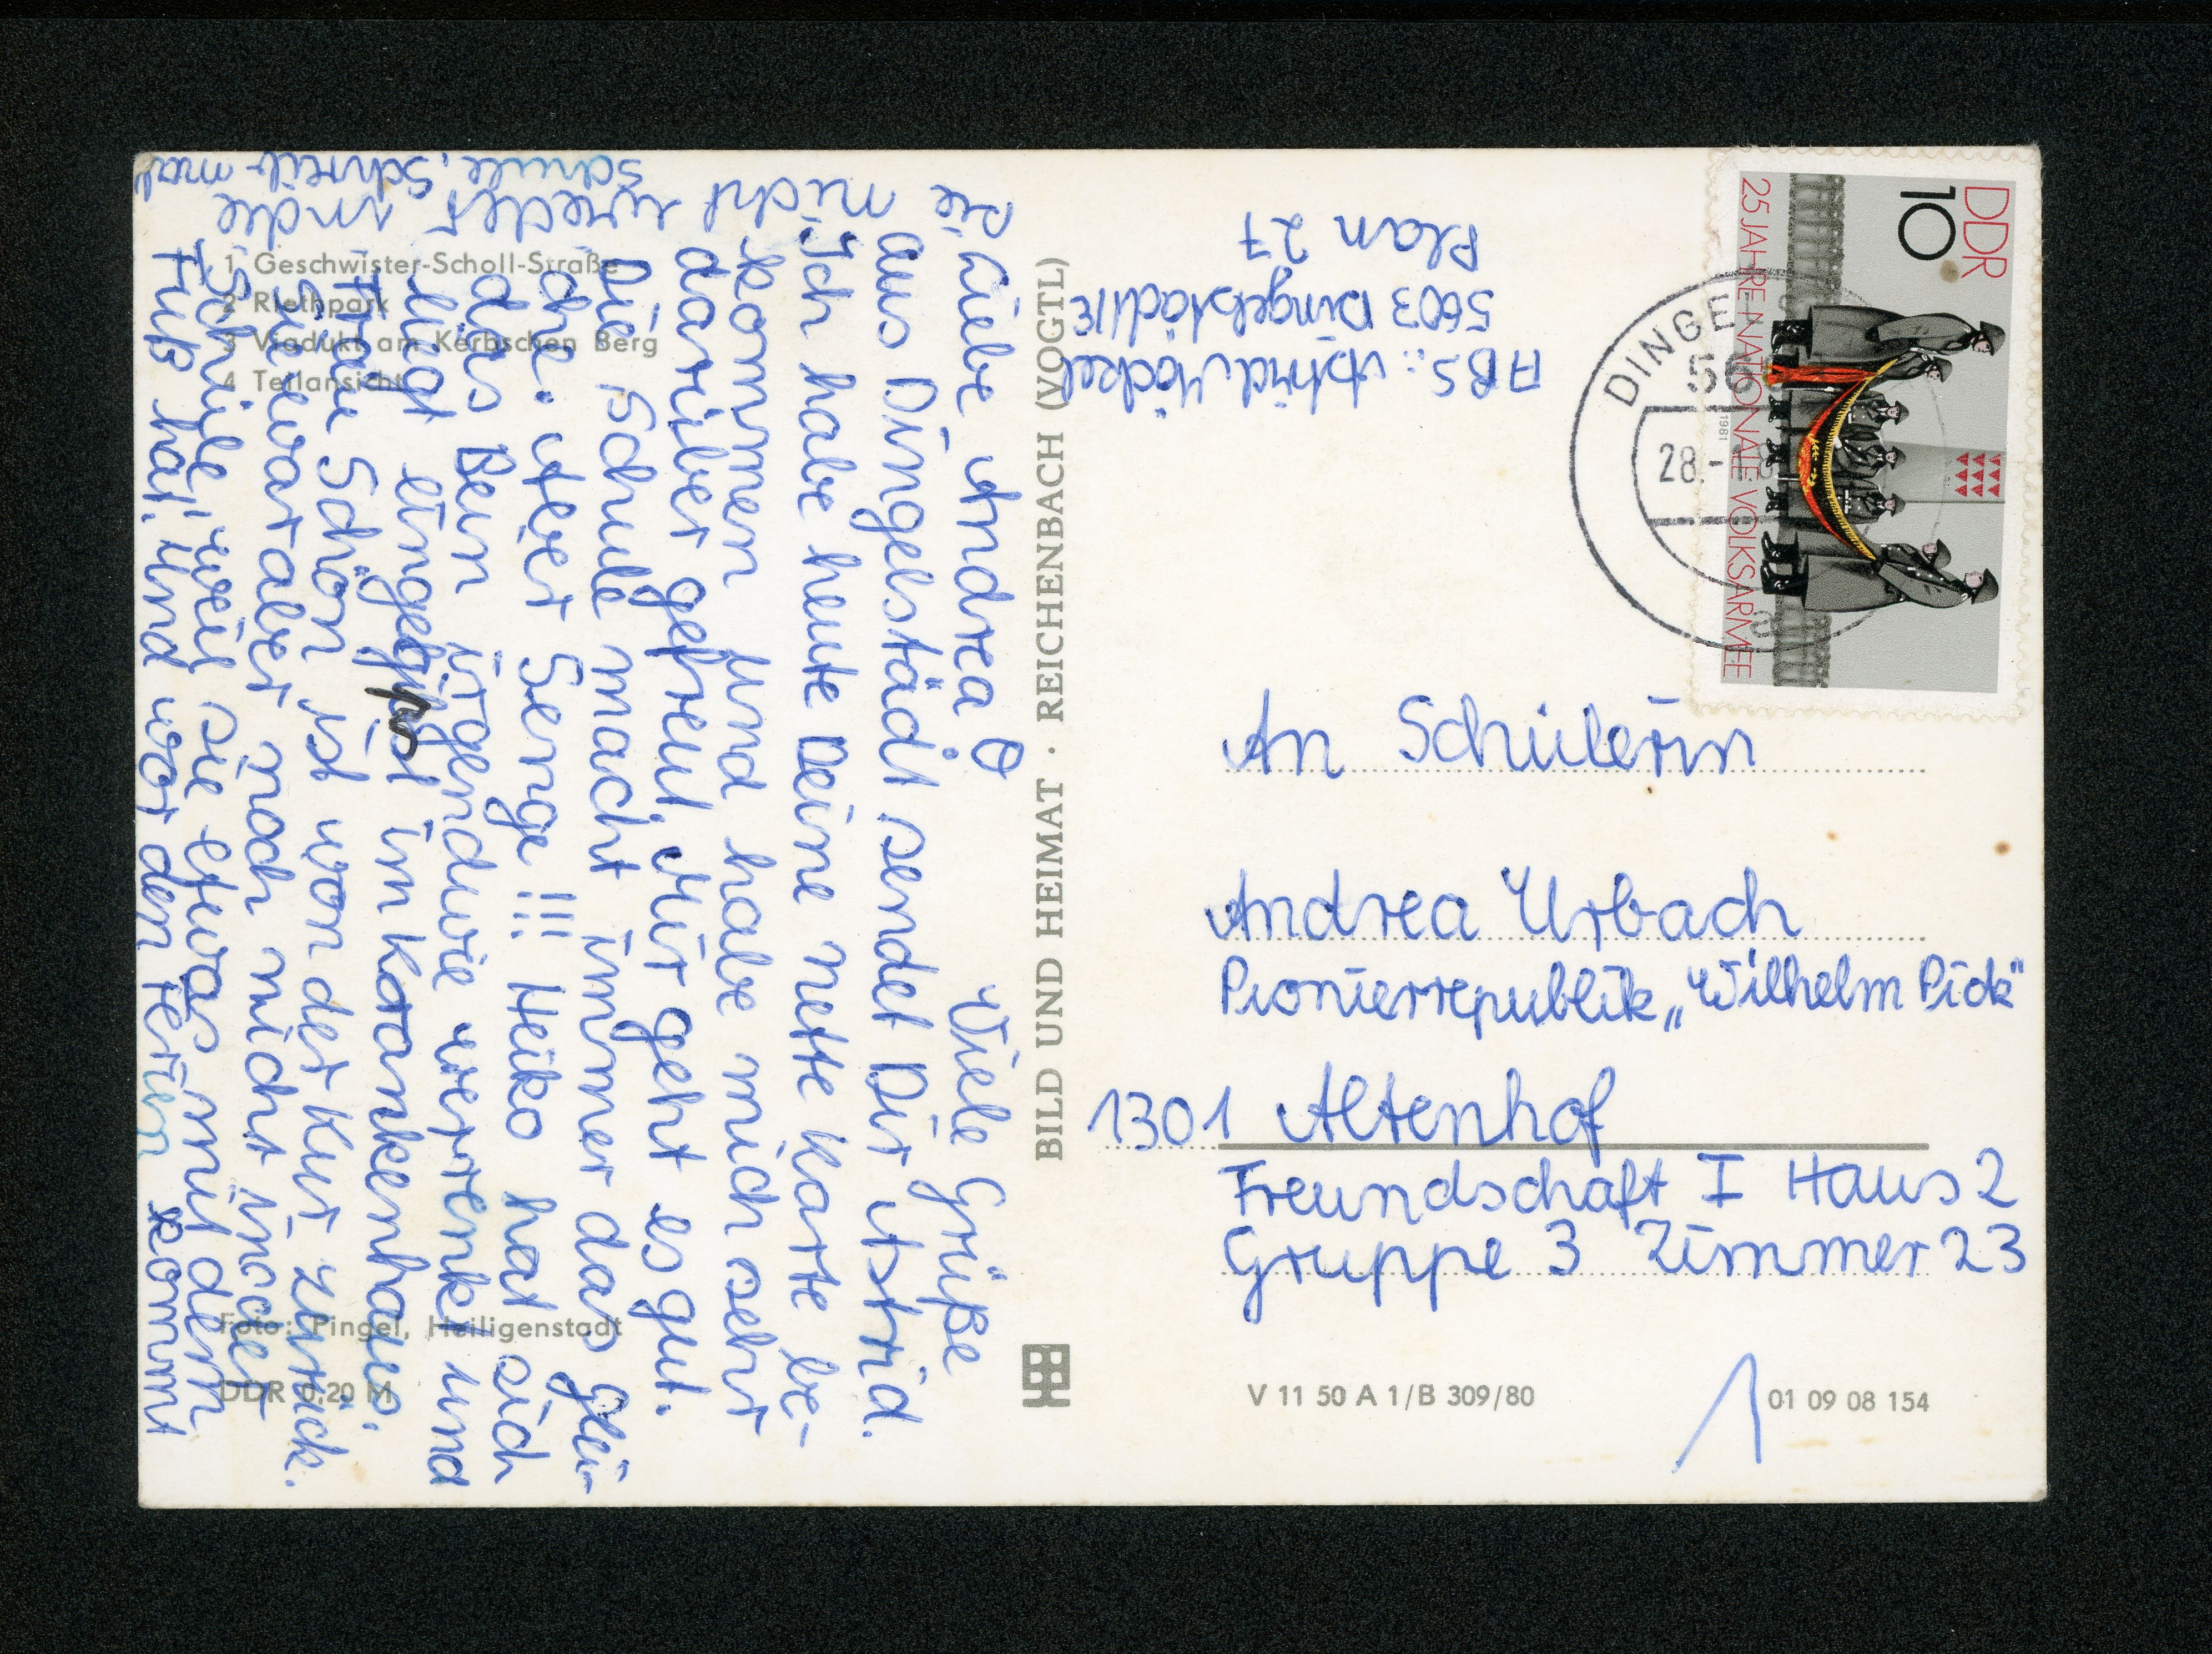 Liebe Andrea
Viele Grüße
aus Dingelstädt sendet Dir Astrid.
Ich habe heute Deine nette Karte be-
kommen und habe mich sehr
darüber gefreut. Mir geht es gut.
Die Schule macht immer das glei-
che. Aber Senge !!! Heiko hat sich
das Bein irgendwie verrenkt und
liegt eingegipst im Krankenhaus.
Frau Schön ist von der Kur zurück.
Sie war aber noch nicht in der
Schule, weil sie etwas mit dem
Fuß hat. Und vor den Ferien kommt
sie
nicht
wieder
in die
Schule, Schreib mal
1 Geschwister-Scholl-Straße
2 Riethpark
3 Viadukt am Kerbschen Berg
4 Teilansicht
Foto: Pingel, Heiligenstadt
DDR 0,20 M
BILD UND HEIMAT · REICHENBACH (VOGTL)
ABS.: Astrid Möckel
5603 Dingelstädt
Plan 27
DDR
10
25 JAHRE NATIONALE VOLKSARMEE
1981
DINGE
56
28.
An Schülerin
Andrea Urbach
Pionierrepublik „Wilhelm Pick"
1301 Altenhof
Freundschaft I Haus 2
Gruppe 3 Zimmer 23
V 11 50 A 1/B 309/80
01 09 08 154